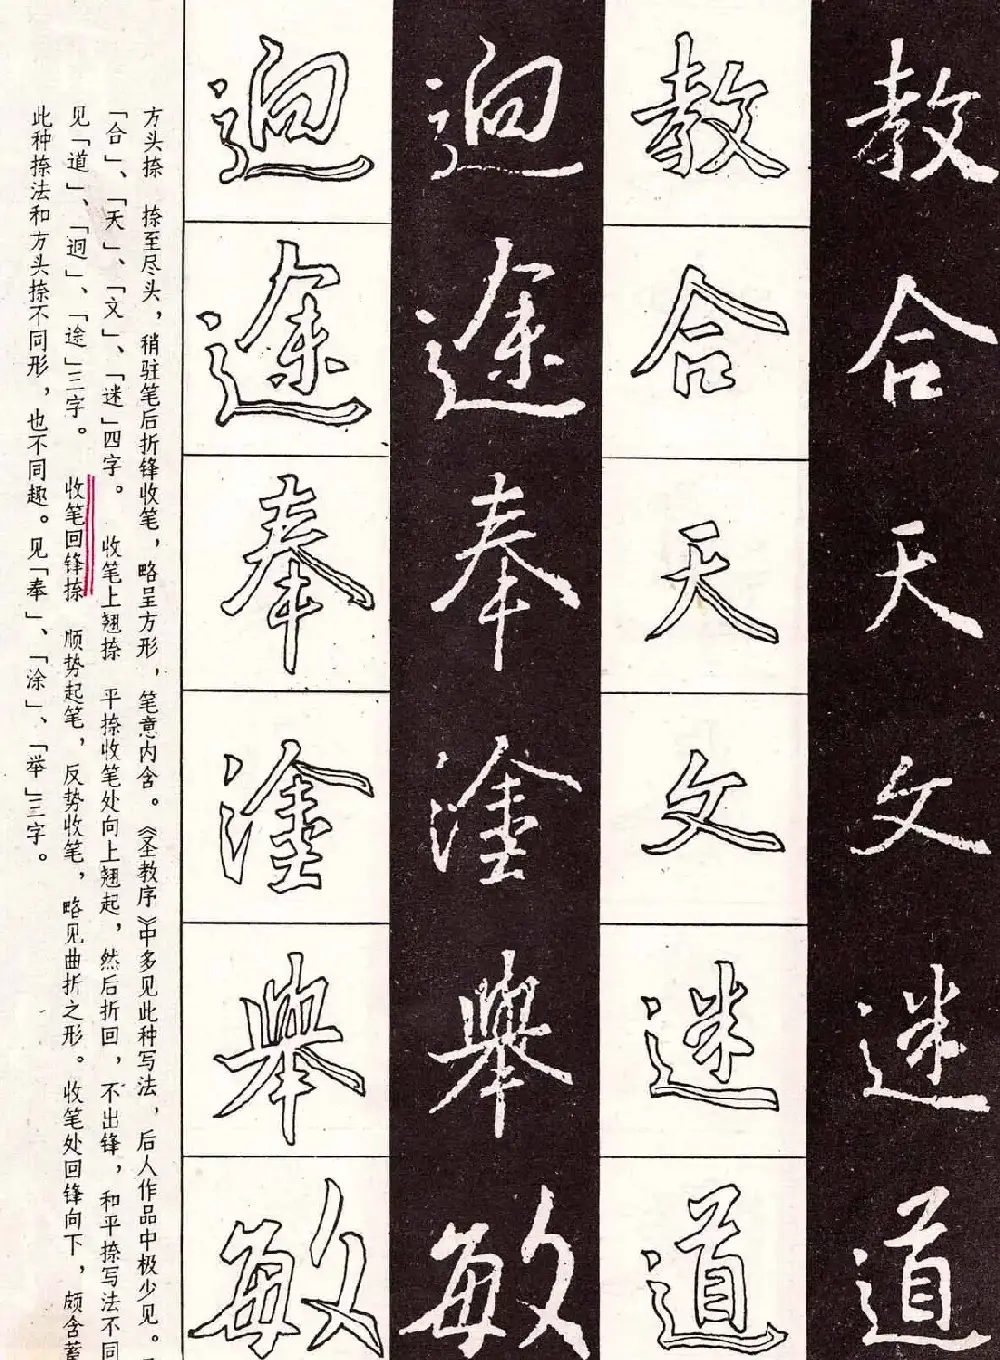 教合天文迷道
教合天文迷道
逈途奉塗舉敏
逈途奉塗舉敏
方头捺　捺至尽头，稍驻笔后折锋收笔，略呈方形，笔意内含。《圣教序》中多见此种写法，后人作品中极少见。
「合」、「天」、「文」、「迷」四字。　收笔上翘捺　平捺收笔处向上翘起，然后折回，不出锋，和平捺写法不同
见「道」、「迥」、「途」三字。　收笔回锋捺　顺势起笔，反势收笔，略见曲折之形。收笔处回锋向下，颇含蓄
此种捺法和方头捺不同形，也不同趣。见「奉」、「涂」、「举」三字。